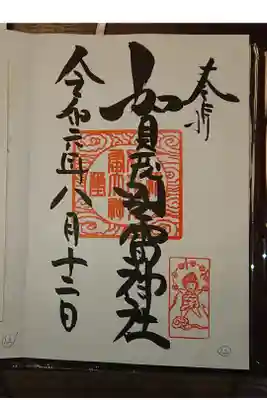 奉拝
賀茂別雷神社
令和六年八月十二日